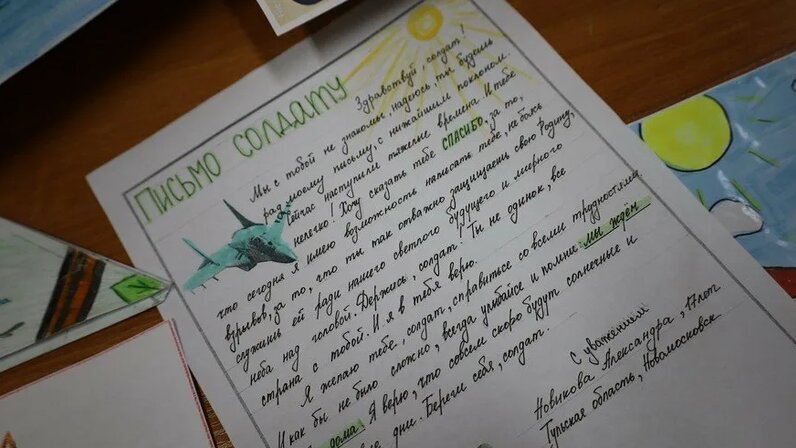 Письмо солдату
Здравствуй, солдат!
Мы с тобой не знакомы, надеюсь, ты будешь
рад моему письму, с нижайшим поклоном.
Сейчас наступили тяжелые времена. И тебе
нелегко! Хочу сказать тебе СПАСИБО за то,
что сегодня я имею возможность написать тебе, не боясь
взрывов, за то, что ты так отважно защищаешь свою Родину,
служишь ей ради нашего светлого будущего и мирного
неба над головой. Держись, солдат! Ты не одинок, вся
страна с тобой. И я в тебя верю.
Я желаю тебе, солдат, справиться со всеми трудностями.
И как бы не было сложно, всегда улыбайся и помни: мы ждём
дома. Я верю, что совсем скоро будут солнечные и
дни. Береги себя, солдат.
С уважением
Новикова Александра, 17 лет
Тульская область, Новомосковск